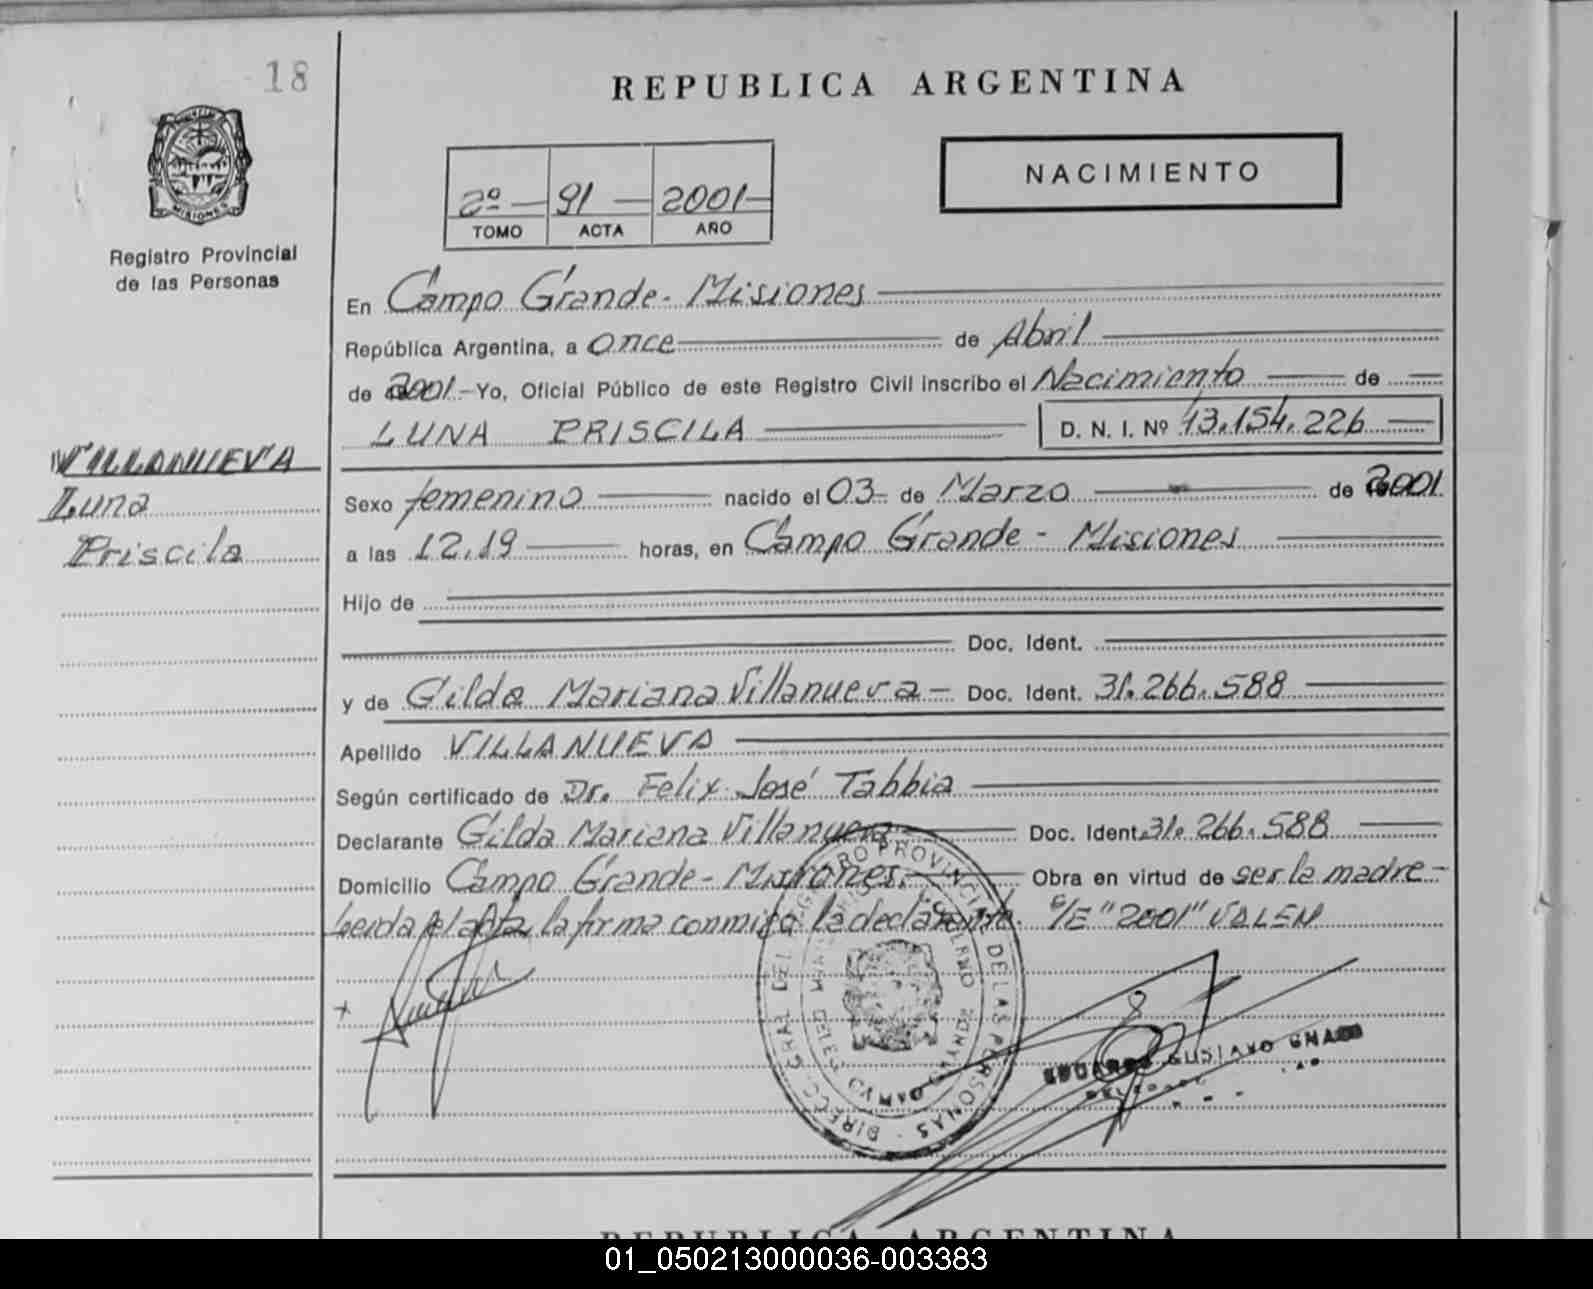 18
REPUBLICA ARGENTINA
NACIMIENTO
2º 91 2001
TOMO ACTA AÑO
MISIONES
Registro Provincial
de las Personas
En Campo Grande - Misiones
República Argentina, a once de Abril
de 2001 - Yo, Oficial Público de este Registro Civil inscribo el Nacimiento de
LUNA PRISCILA D. N. I. Nº 43.154.226
VILLANUEVA
Luna
Priscila
Sexo femenino nacido el 03 de Marzo de 2001
a las 12,19 horas, en Campo Grande - Misiones
Hijo de
Doc. Ident.
y de Gilda Mariana Villanueva - Doc. Ident. 31.266.588
Apellido VILLANUEVA
Según certificado de Dr. Felix José Tabbia
Declarante Gilda Mariana Villanueva Doc. Ident. 31.266.588
Domicilio Campo Grande - Misiones. Obra en virtud de ser la madre -
Leida el acta, la firma conmigo la declarante. S/E "2001" VALEN
DIRECC. GRAL. DEL REGISTRO PROVINCIAL DE LAS PERSONAS
GUSTAVO
REPUBLICA ARGENTINA
01_050213000036-003383